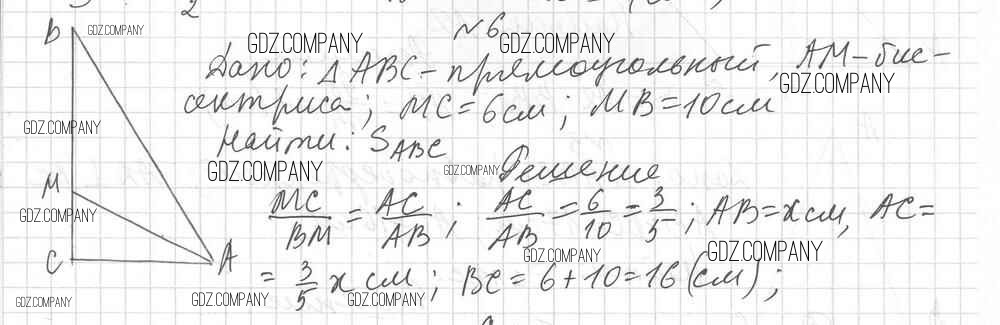 B GDZ.COMPANY №6
GDZ.COMPANY GDZ.COMPANY
Дано: △ABC - прямоугольный, AM - бис-
GDZ.COMPANY
сектриса; MC = 6см; MB = 10см
GDZ.COMPANY
Найти: S_ABC
GDZ.COMPANY GDZ.COMPANY Решение
M
GDZ.COMPANY
MC/BM = AC/AB; AC/AB = 6/10 = 3/5; AB = x см, AC =
GDZ.COMPANY GDZ.COMPANY
C A = 3/5 x см; BC = 6 + 10 = 16 (см);
GDZ.COMPANY GDZ.COMPANY GDZ.COMPANY